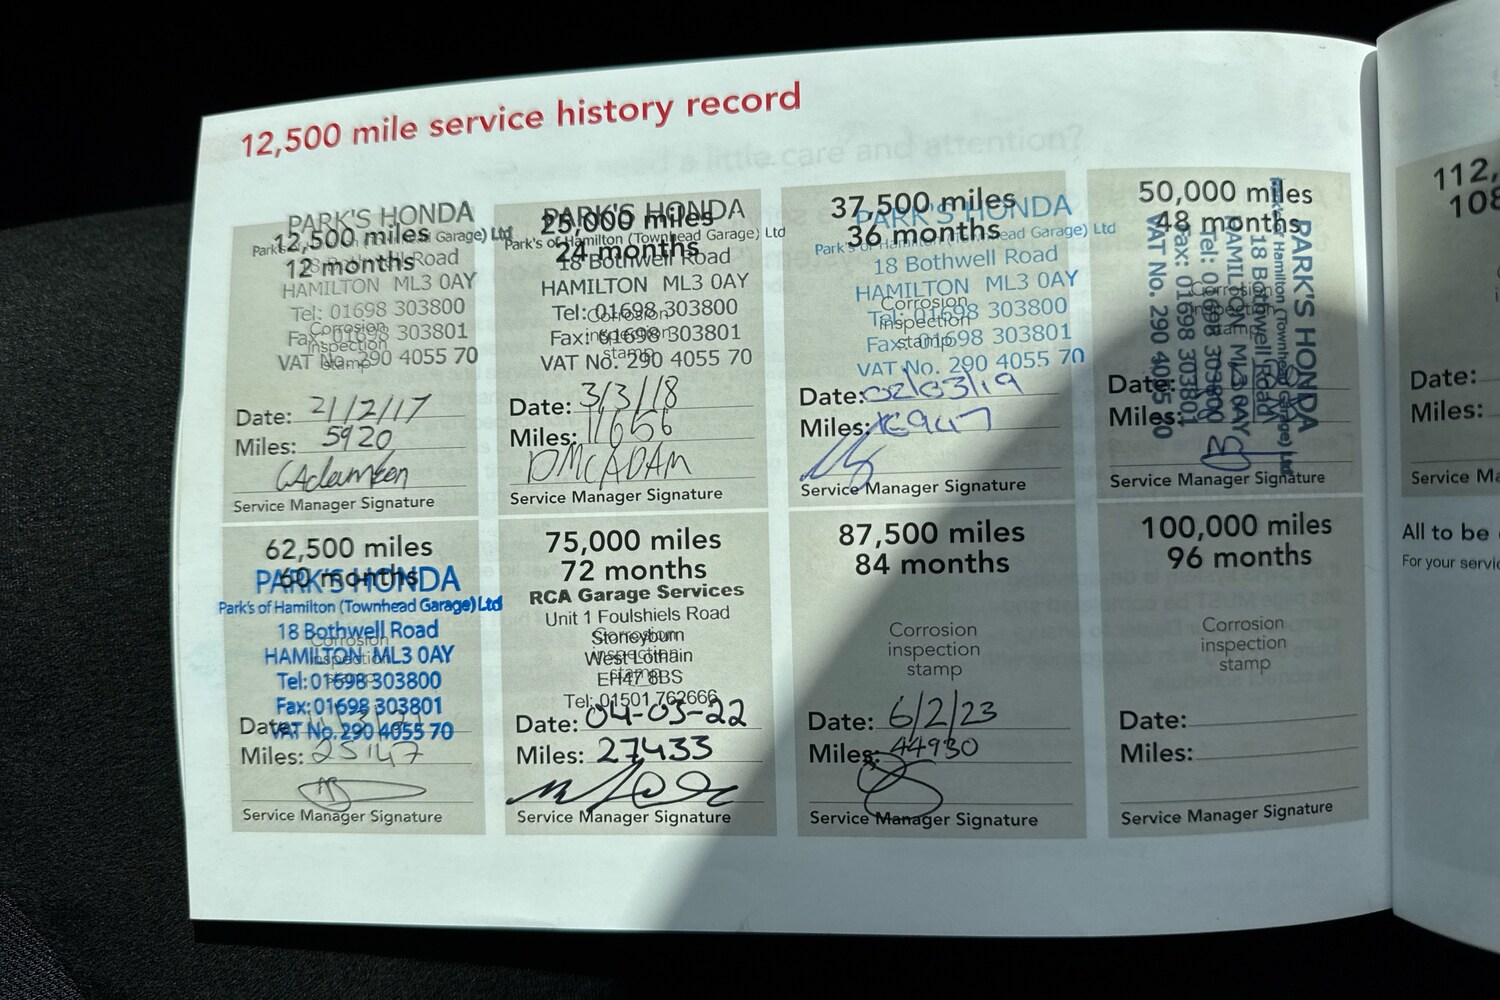 12,500 mile service history record
PARK'S HONDA
12,500 miles
Park's of Hamilton (Townhead Garage) Ltd
12 months
18 Bothwell Road
HAMILTON ML3 0AY
Tel: 01698 303800
Corrosion
Fax: 01698 303801
inspection
VAT No. 290 4055 70
stamp
Date: 21/2/17
Miles: 5920
Service Manager Signature
PARK'S HONDA
25,000 miles
Park's of Hamilton (Townhead Garage) Ltd
24 months
18 Bothwell Road
HAMILTON ML3 0AY
Tel: 01698 303800
Corrosion
Fax: 01698 303801
inspection
stamp
VAT No. 290 4055 70
Date: 3/3/18
Miles: 11656
D McADAM
Service Manager Signature
37,500 miles
PARK'S HONDA
36 months
Park's of Hamilton (Townhead Garage) Ltd
18 Bothwell Road
HAMILTON ML3 0AY
Corrosion
Tel: 01698 303800
inspection
Fax: 01698 303801
stamp
VAT No. 290 4055 70
Date: 02/03/19
Miles: 16947
Service Manager Signature
50,000 miles
48 months
PARK'S HONDA
Park's of Hamilton (Townhead Garage) Ltd
18 Bothwell Road
HAMILTON ML3 0AY
Tel: 01698 303800
Fax: 01698 303801
VAT No. 290 4055 70
Corrosion
inspection
stamp
Date:
Miles:
Service Manager Signature
62,500 miles
60 months
PARK'S HONDA
Park's of Hamilton (Townhead Garage) Ltd
18 Bothwell Road
Corrosion
HAMILTON ML3 0AY
inspection
Tel: 01698 303800
Fax: 01698 303801
Date:
VAT No. 290 4055 70
Miles: 25147
Service Manager Signature
75,000 miles
72 months
RCA Garage Services
Unit 1 Foulshiels Road
Stoneyburn
Corrosion
West Lothain
inspection
EH47 8BS
stamp
Tel: 01501 762666
Date: 04-03-22
Miles: 27433
Service Manager Signature
87,500 miles
84 months
Corrosion
inspection
stamp
Date: 6/2/23
Miles: 44930
Service Manager Signature
100,000 miles
96 months
Corrosion
inspection
stamp
Date:
Miles:
Service Manager Signature
112,
108
Date:
Miles:
Service Ma
All to be
For your servic